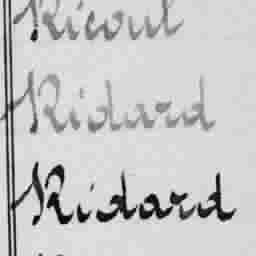 Ricoul
Ridard
Ridard